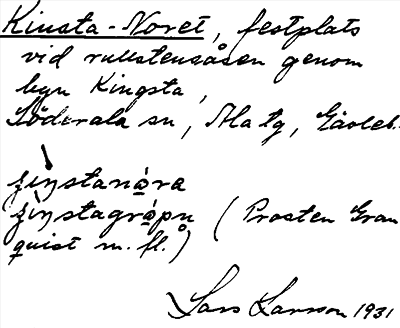 Kinsta-Noret, festplats
vid rullstensåsen genom
byn Kingsta,
Söderala sn, Ala tg, Gävleb.
şinstanǫra
şinstagrǫpn (Prosten Gran
quist m. fl.)
Lars Larsson 1931